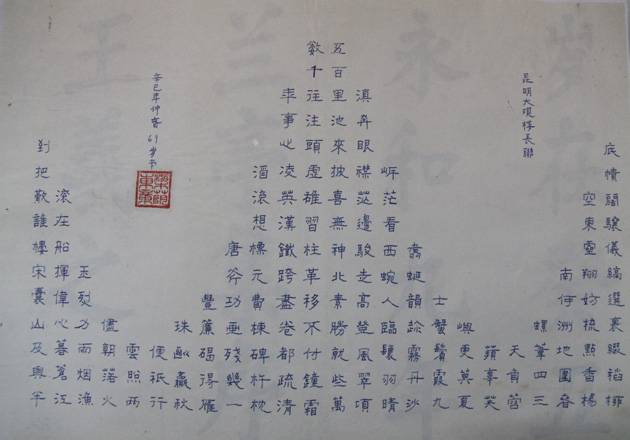 昆明大观楼長聯
底幘闊驤儀縞選裹綴稻柳
空東靈翔妨梳點香楊
南何洲地圍春
螺葦四三
天負蓉
蘋辜芙
嶼更莫夏
士蟹鬢霞九
翥蜒韻趁霧丹沙
岸茫看西蜿人臨鬟羽晴
滇奔眼襟茫邊駿走高登風翠頃
五百里池來披喜無神北素勝就些萬
数千往注頭虛雄習柱革移不付鐘霜
年事心凌英漢鐵跨盡卷都疏清
滔滾想標元費棟碑杵枕
唐斧功画殘幾一
豐簾碣得雁
珠畝贏秋
便祇行
雲照兩
儘朝落火
玉烈力雨烟漁
滾在船揮偉心暮蒼江
到把歎誰樓宋囊山及與半
辛巳年仲春69岁书